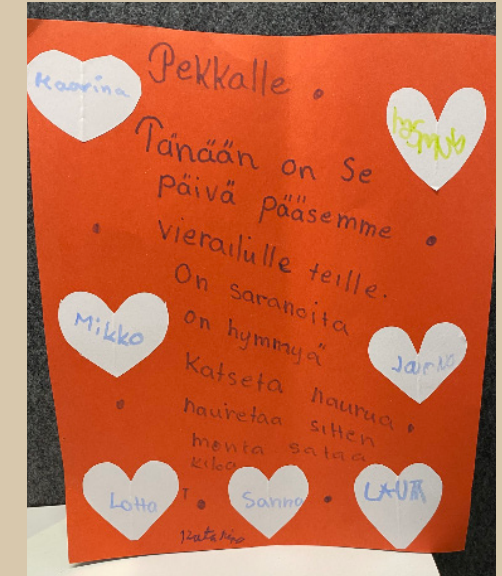 Kaarina
Pekkalle.
Tänään on Se
päivä pääsemme
vierailulle teille.
On saranoita
on hymmyä
Katseta naurua.
nauretaa sitten
monta sataa
kiloa
Mikko
Jarno
Lotta
T
Sanna
LAURA